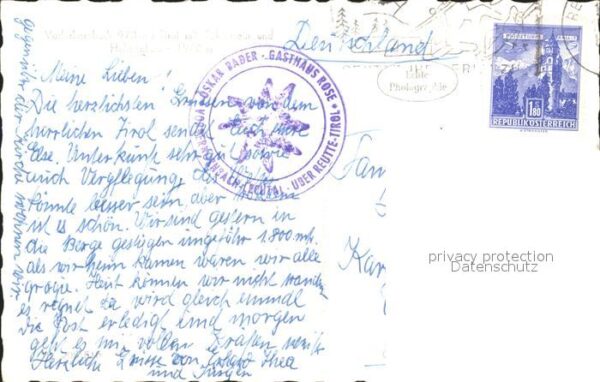 Deutschland
Meine Lieben!
Die herzlichsten Grüße von dem
herrlichen Tirol sendet Euch Eure
Else. Unterkunft sehr gut sowie
auch Verpflegung, das Wetter
könnte besser sein aber
ist es schön. Wir sind gestern in
die Berge gestiegen ungefähr 1.800 mh.
als wir heim kamen waren wir alle
groggie. Heut können wir nicht wandern
es regnet da wird gleich einmal
die Post erledigt und morgen
geht es mit vollen Kräften weiter
Herzliche Grüsse von Thea
und Jürgen
Gegenüber der Kirche wohnen wir
OSKAR BADER · GASTHAUS ROSE
LECHTAL · ÜBER REUTTE-TIROL
Photographie
1.80
REPUBLIK ÖSTERREICH
Fam
Kar
privacy protection
Datenschutz